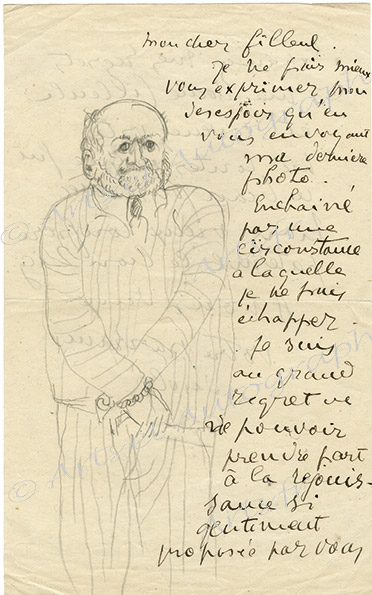 mon cher filleul.
Je ne puis mieux
vous exprimer mon
desespoir qu'en
vous envoyant
ma derniere
photo.
Enchainé
par une
circonstance
à laquelle
je ne puis
échapper.
Je suis
au grand
regret de
ne pouvoir
prendre part
à la rejouis-
sance si
gentiment
proposée par vous